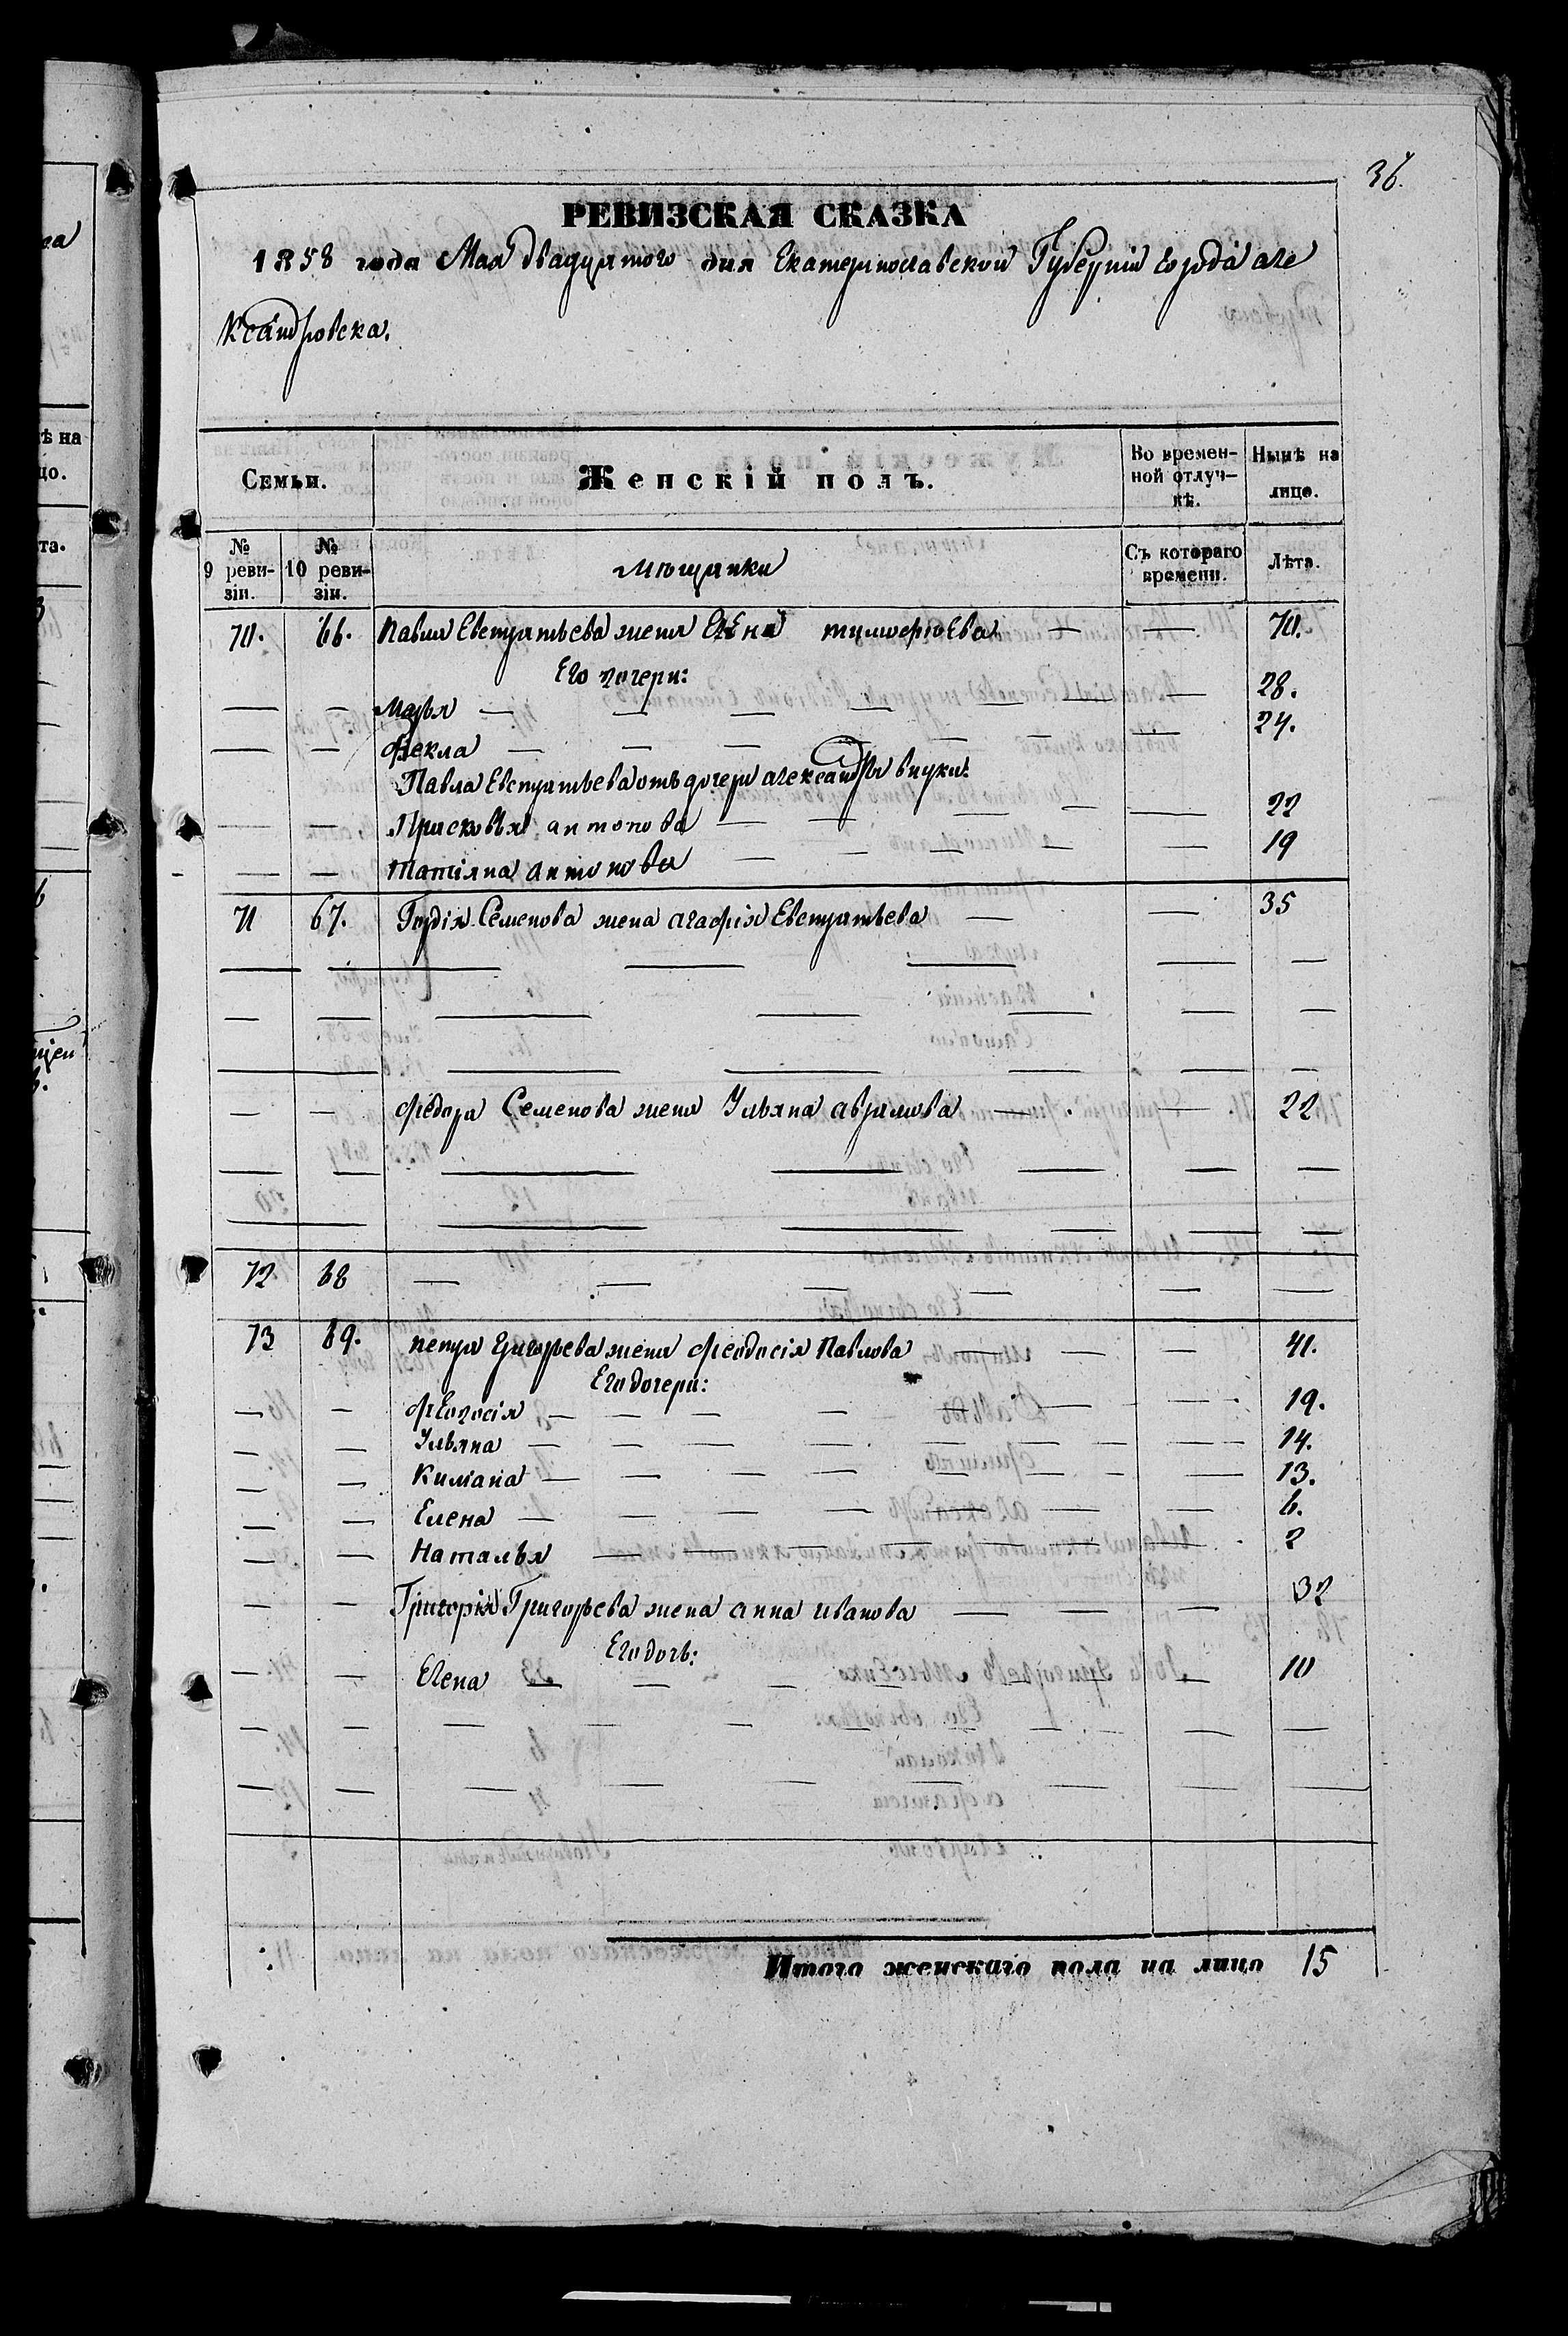 36.
РЕВИЗСКАЯ СКАЗКА
1858 года Мая двадцатого дня Екатеринославской Губернiи города але
ксандровска.
Семьи. Женскій полъ. Во времен- Нынѣ на
ной отлуч- лицо.
кѣ.
№ № мѣщанки Съ котораго Лѣта.
9 реви- 10 реви- времени.
зіи. зіи.
70. 66. Павла Евстратьева жена Елена — — 70.
Его дочери:
— — Марья — — — — — — — 28.
— — Фекла — — — — — — — 24.
Павла Евстратьева отъ дочери александры внуки:
— — Прасковья антонова — — — — — 22
— — Татіяна антонова — — — — — 19
71 67. Гордія Семенова жена агафія Евстратьева — — 35
— — Федора Семенова жена Ульяна аврамова — — 22
72 68 — — — — — —
73 69. петра григорьева жена феодосія Павлова — — — 41.
Его дочери:
— — феодосія — — — — — — — 19.
— — Ульяна — — — — — — — 14.
— — Киліана — — — — — — — 13.
— — Елена — — — — — — — 6.
— — Наталья — — — — — — 2
— — Григорія Григорьева жена анна иванова — — — 32
Его дочь:
— — Елена — — — — — — 10
Итого женскаго пола на лицо 15
ѣ на
цо.
та.